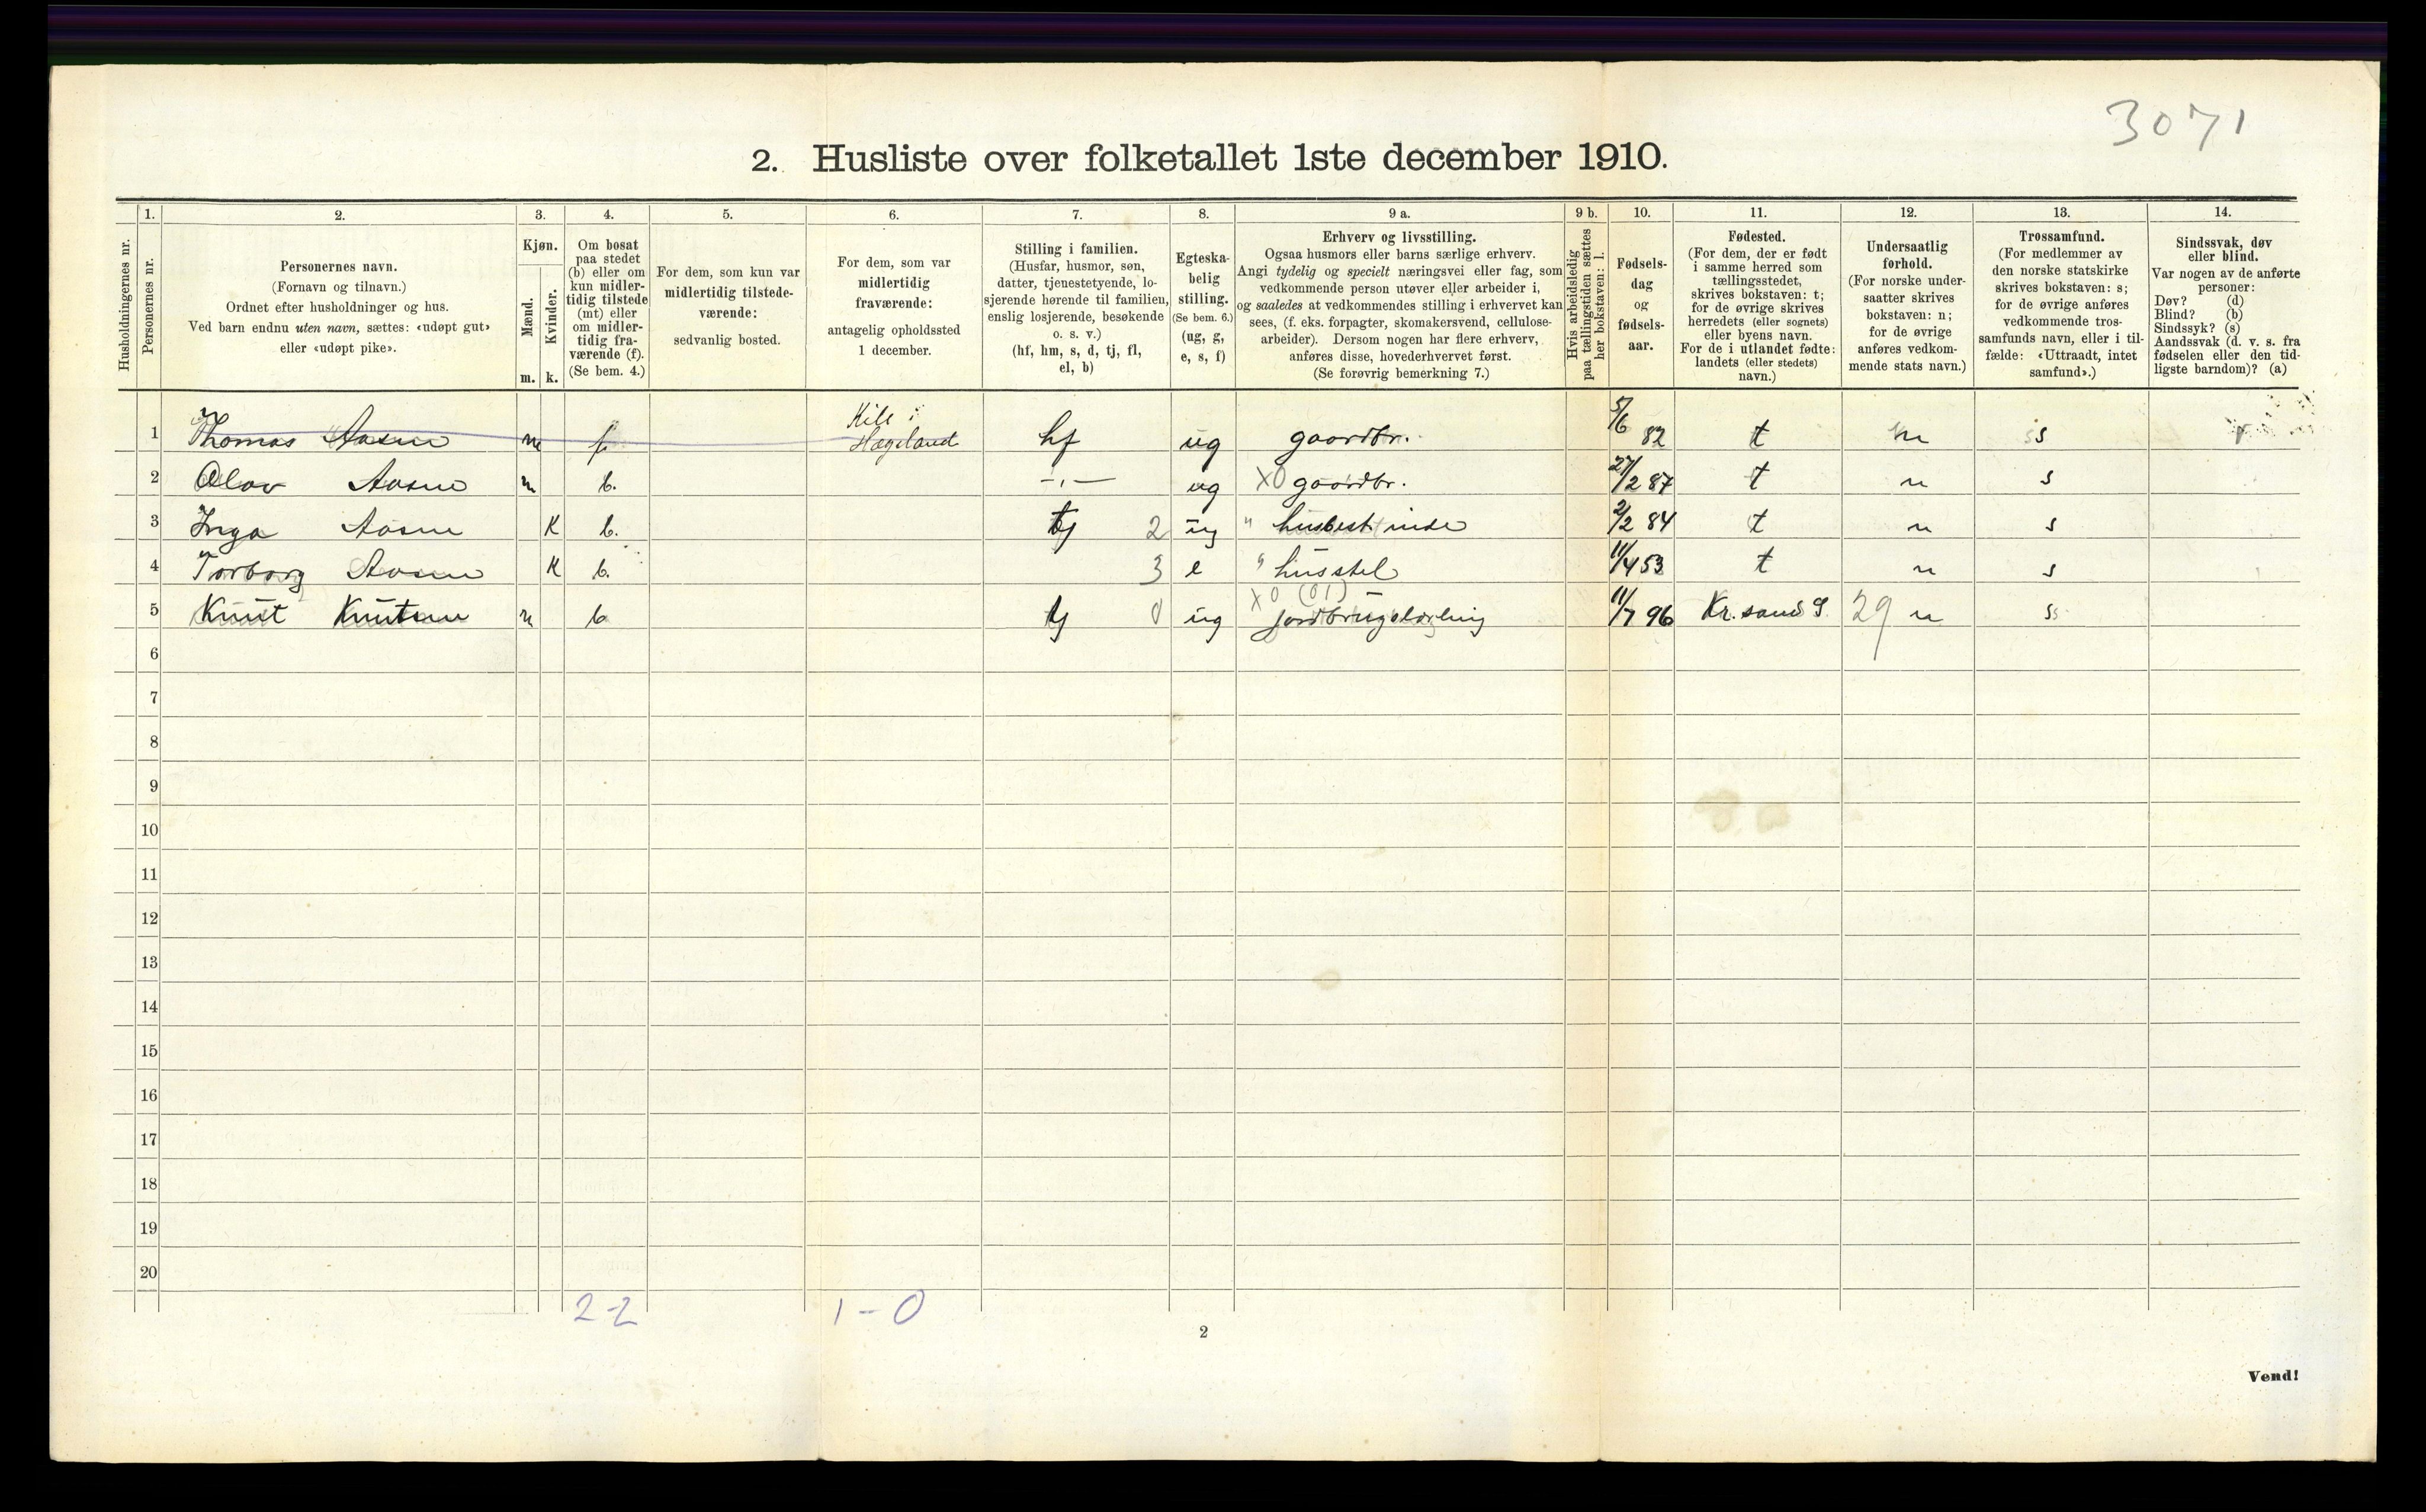 3071
2. Husliste over folketallet 1ste december 1910.
1. 2. 3. 4. 5. 6. 7. 8. 9 a. 9 b. 10. 11. 12. 13. 14.
Husholdningernes nr.
Personernes nr.
Personernes navn.
(Fornavn og tilnavn.)
Ordnet efter husholdninger og hus.
Ved barn endnu uten navn, sættes: «udøpt gut»
eller «udøpt pike».
Kjøn.
Mænd.
Kvinder.
m. k.
Om bosat
paa stedet
(b) eller om
kun midler-
tidig tilstede
(mt) eller
om midler-
tidig fra-
værende (f).
(Se bem. 4.)
For dem, som kun var
midlertidig tilstede-
værende:
sedvanlig bosted.
For dem, som var
midlertidig
fraværende:
antagelig opholdssted
1 december.
Stilling i familien.
(Husfar, husmor, søn,
datter, tjenestetyende, lo-
sjerende hørende til familien,
enslig losjerende, besøkende
o. s. v.)
(hf, hm, s, d, tj, fl,
el, b)
Egteska-
belig
stilling.
(Se bem. 6.)
(ug, g,
e, s, f)
Erhverv og livsstilling.
Ogsaa husmors eller barns særlige erhverv.
Angi tydelig og specielt næringsvei eller fag, som
vedkommende person utøver eller arbeider i,
og saaledes at vedkommendes stilling i erhvervet kan
sees, (f. eks. forpagter, skomakersvend, cellulose-
arbeider). Dersom nogen har flere erhverv,
anføres disse, hovederhvervet først.
(Se forøvrig bemerkning 7.)
Hvis arbeidsledig
paa tællingstiden sættes
her bokstaven: l.
Fødsels-
dag
og
fødsels-
aar.
Fødested.
(For dem, der er født
i samme herred som
tællingsstedet,
skrives bokstaven: t;
for de øvrige skrives
herredets (eller sognets)
eller byens navn.
For de i utlandet fødte:
landets (eller stedets)
navn.)
Undersaatlig
forhold.
(For norske under-
saatter skrives
bokstaven: n;
for de øvrige
anføres vedkom-
mende stats navn.)
Trossamfund.
(For medlemmer av
den norske statskirke
skrives bokstaven: s;
for de øvrige anføres
vedkommende tros-
samfunds navn, eller i til-
fælde: «Uttraadt, intet
samfund».)
Sindssvak, døv
eller blind.
Var nogen av de anførte
personer:
Døv? (d)
Blind? (b)
Sindssyk? (s)
Aandssvak (d. v. s. fra
fødselen eller den tid-
ligste barndom)? (a)
1 Thomas Aasen m f Kile i Hægeland hf ug gaardbr. 5/6 82 t n s
2 Olav Aasen m b. -"- ug X0 gaardbr. 27/2 87 t n s
3 Inga Aasen K b. tj 2 ug " husbest inde 2/2 84 t n s
4 Torborg Aasen K b. 3 e " husstel 11/4 53 t n s
X0 (01)
5 Knut Knutsen m b tj 0 ug jordbrugslærling 11/7 96 Kr.sand S 29 n s
6
7
8
9
10
11
12
13
14
15
16
17
18
19
20
2-2 1-0
2
Vend!